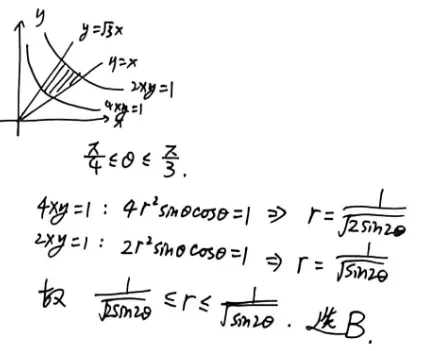 y
y=√3x
y=x
2xy=1
4xy=1
x
π/4 ≤ θ ≤ π/3.
4xy=1 : 4r²sinθcosθ=1 ⇒ r = 1/√(2sin2θ)
2xy=1 : 2r²sinθcosθ=1 ⇒ r = 1/√(sin2θ)
故 1/√(2sin2θ) ≤ r ≤ 1/√(sin2θ) . 选B.